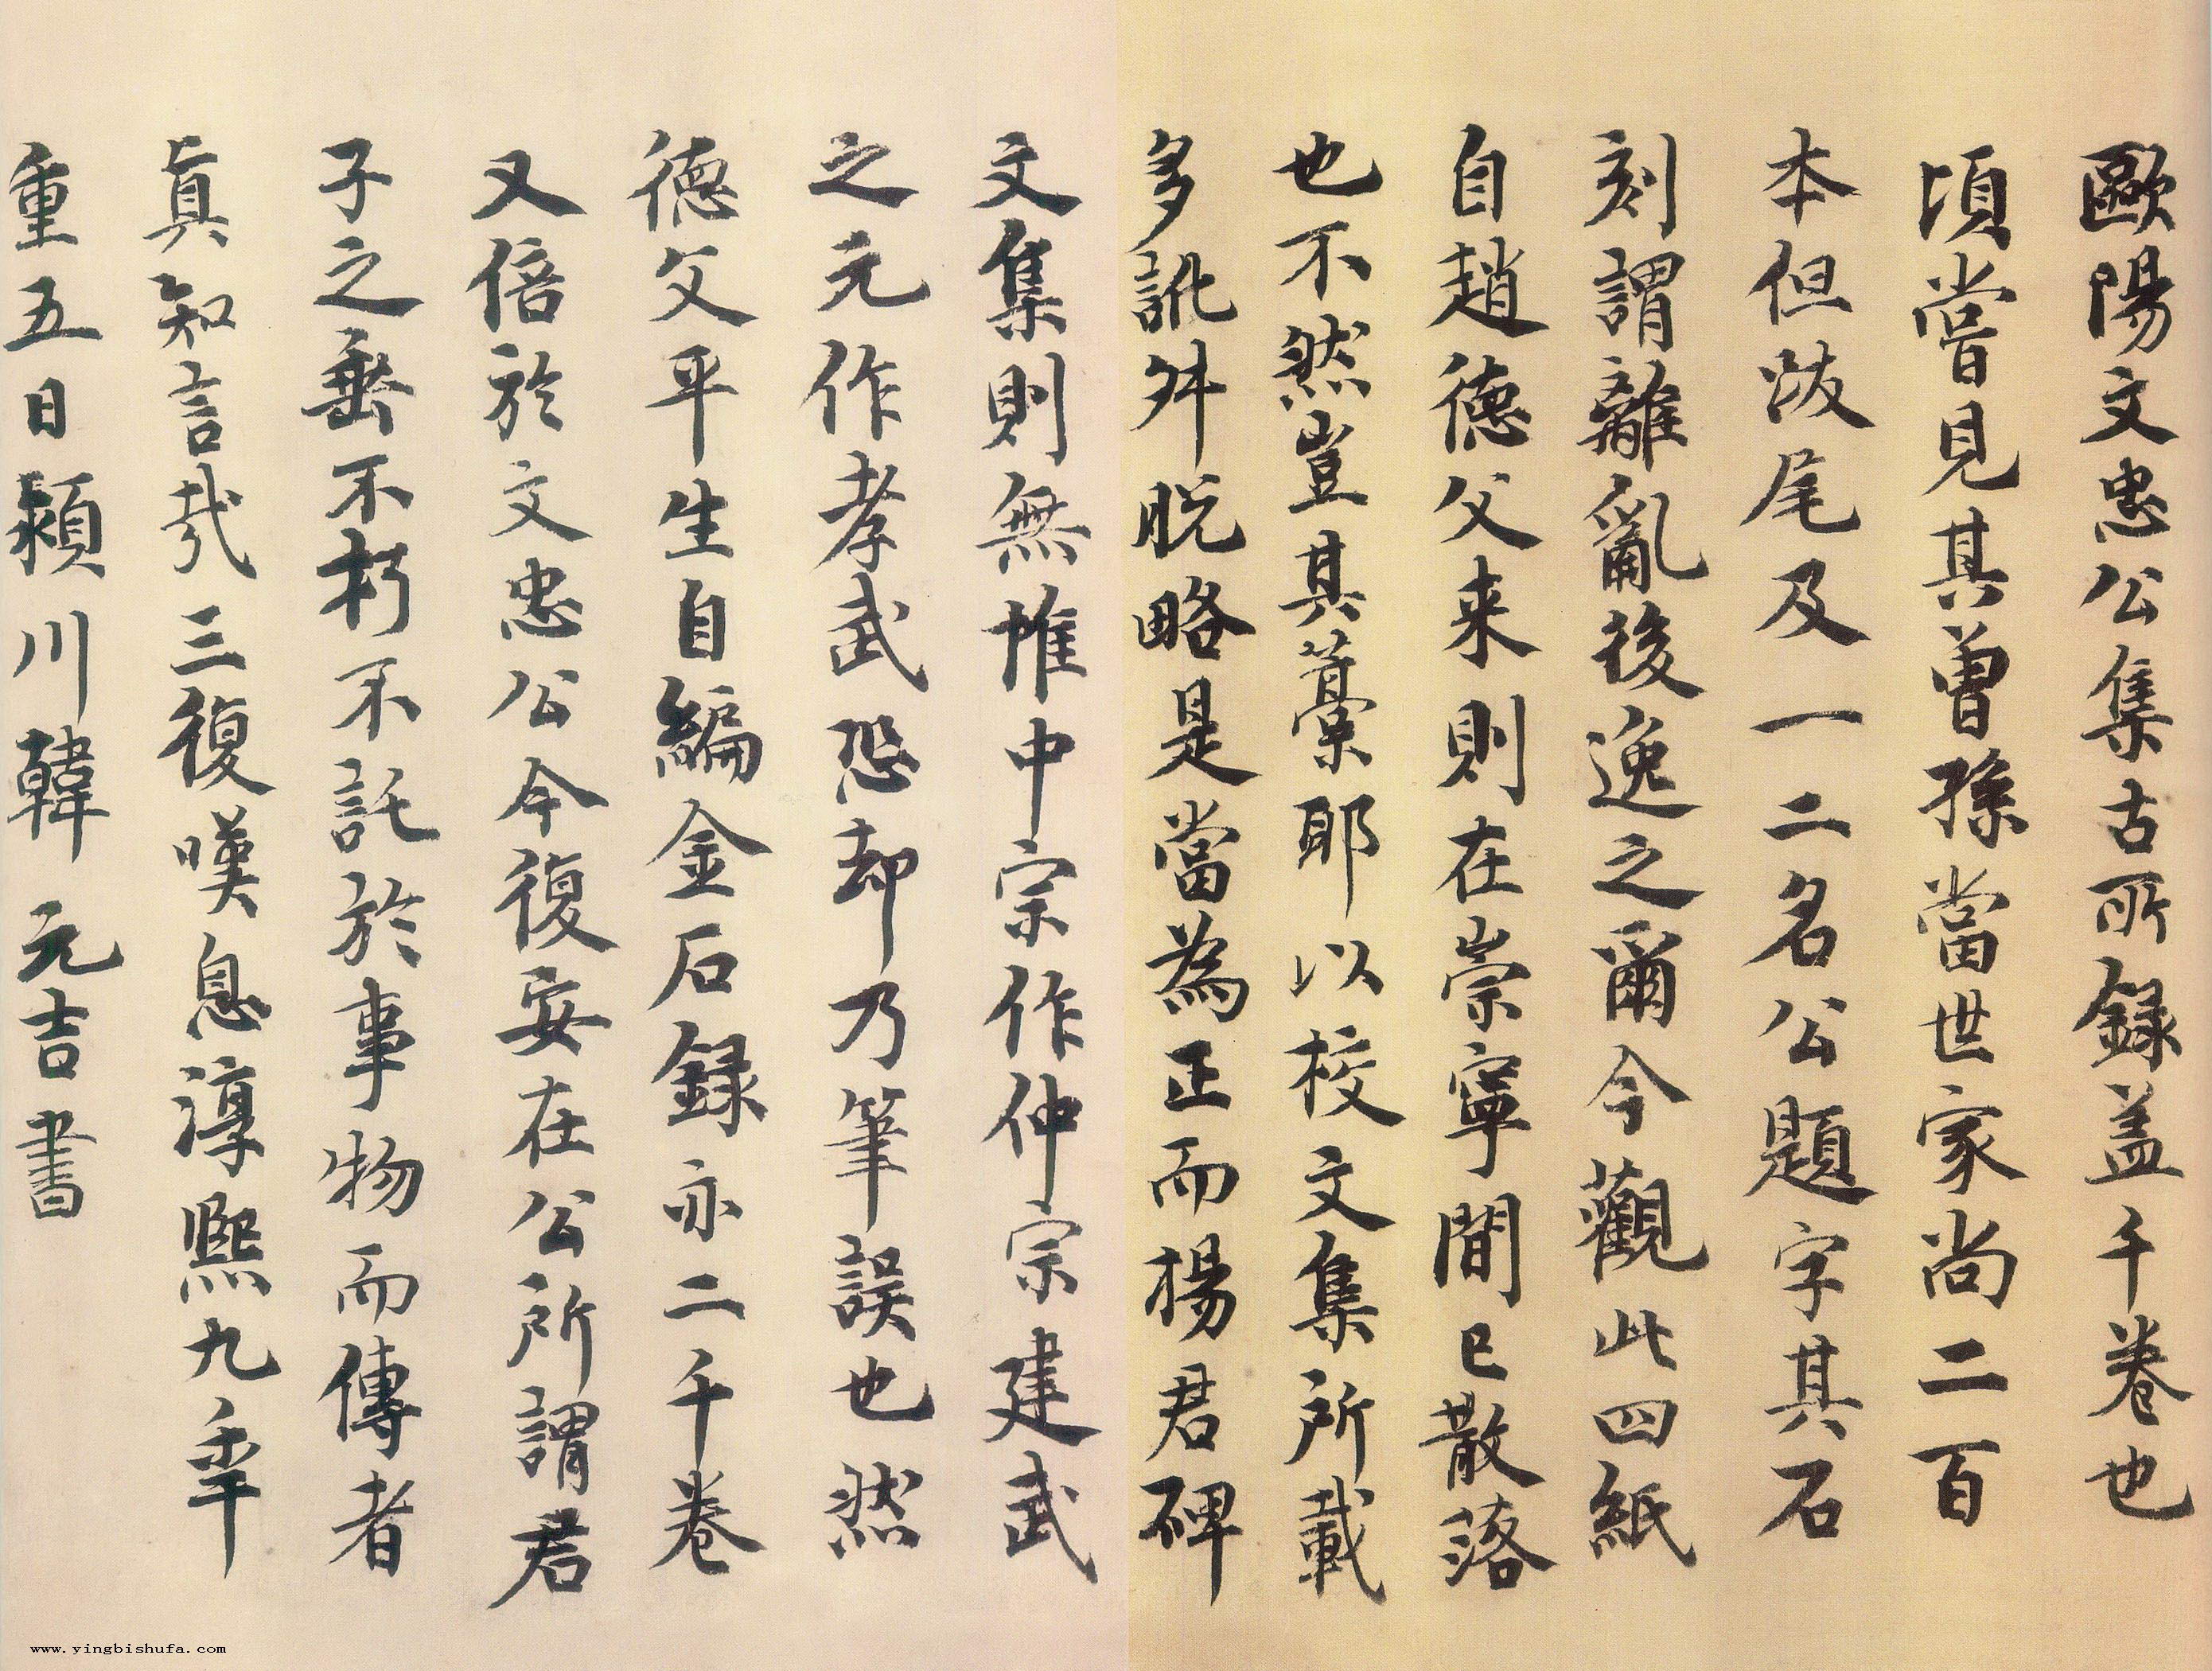 歐陽文忠公集古所録盖千卷也
頃嘗見其曽孫當世家尚二百
本但跋尾及一二名公題字其石
刻謂離亂後逸之爾今觀此四紙
自趙德父来則在崇寧間已散落
也不然豈其藁耶以校文集所載
多訛舛脱略是當為正而楊君碑
文集則無惟中宗作仲宗建武
之元作孝武恐却乃筆誤也然
德父平生自編金石録亦二千卷
又倍於文忠公今復安在公所謂君
子之垂不朽不託於事物而傳者
真知言哉三復嘆息淳熙九年
重五日潁川韓元吉書
www.yingbishufa.com